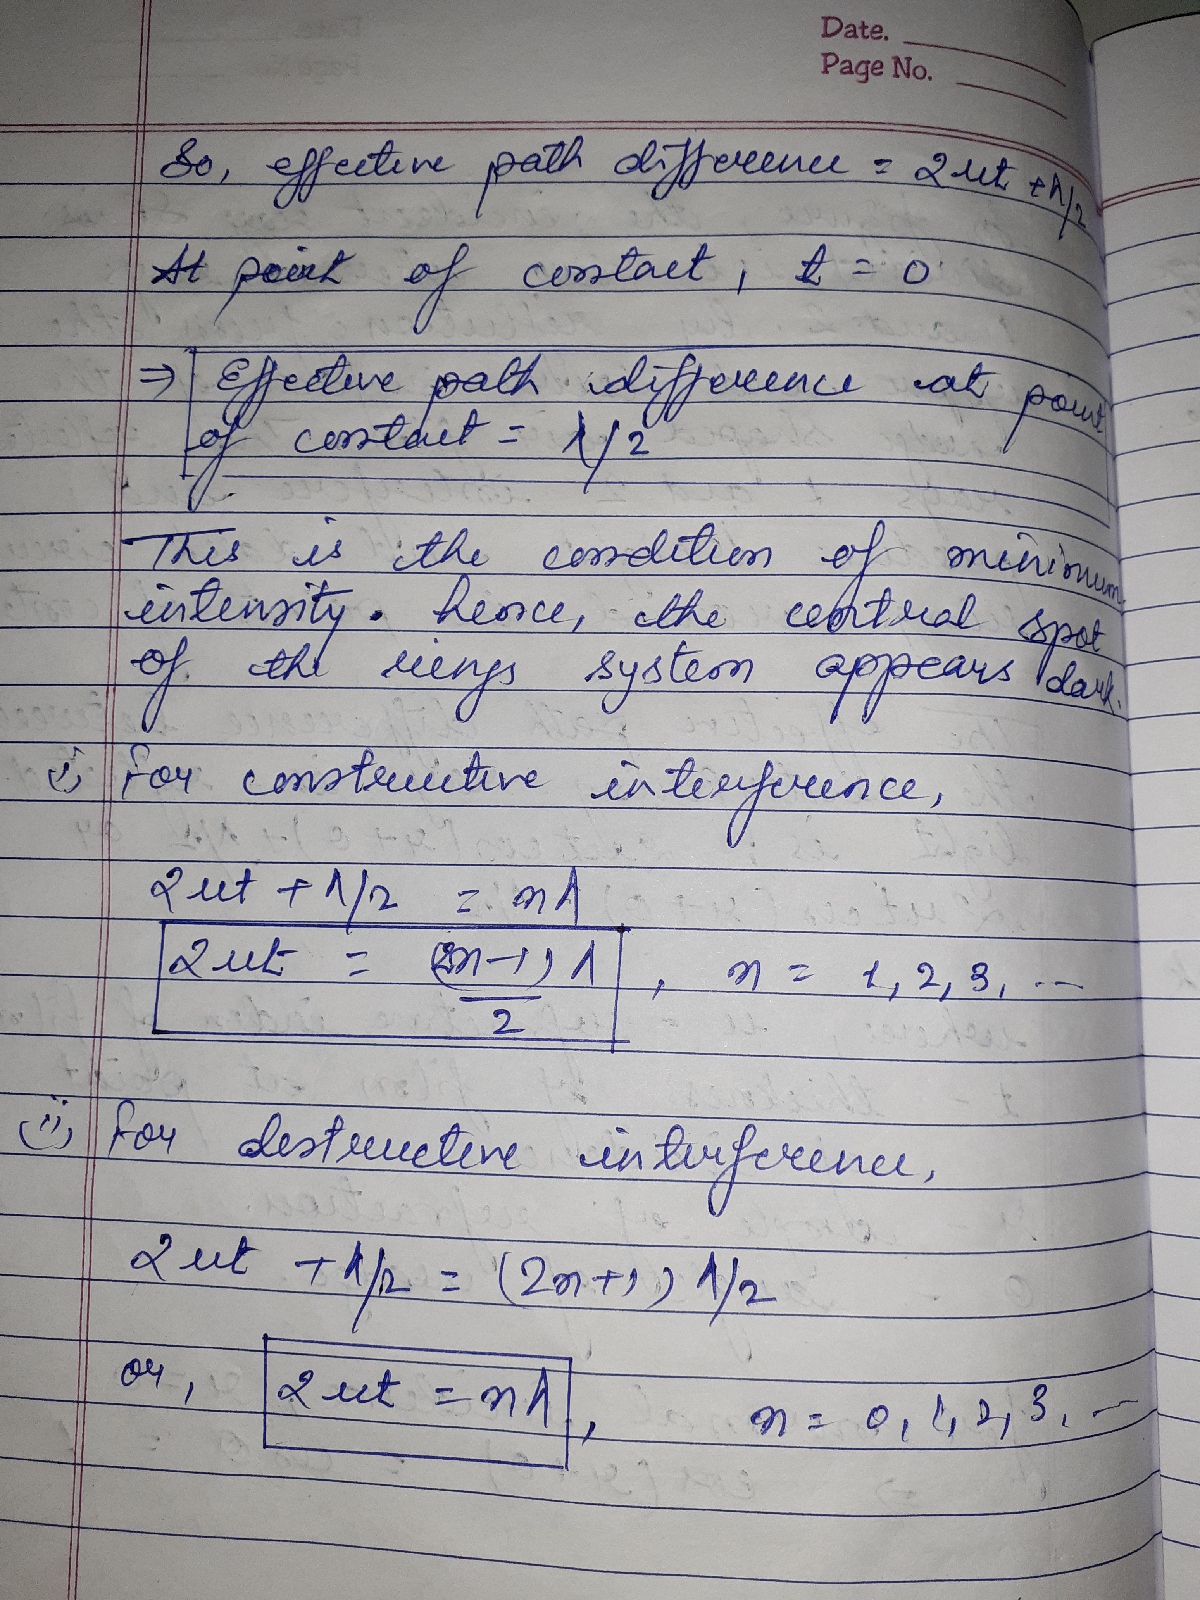 Date.
Page No.
So, effective path difference = 2μt + λ/2
At point of contact, t = 0
⇒ Effective path difference at point
of contact = λ/2
This is the condition of minimum
intensity. hence, the central spot
of the rings system appears dark.
i) for constructive interference,
2μt + λ/2 = nλ
2μt = (2n-1)λ/2 , n = 1, 2, 3, ...
ii) for destructive interference,
2μt + λ/2 = (2n+1) λ/2
or, 2μt = nλ , n = 0, 1, 2, 3, ...